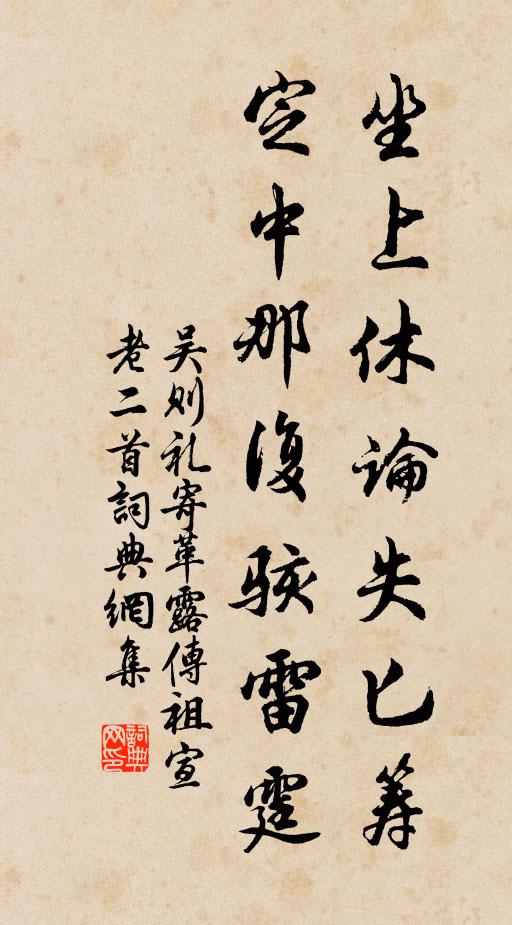 坐上休論失匕箸
定中那復駭雷霆
吴则礼寄革露傳祖宣
老二首詞典網集
詞典
网印